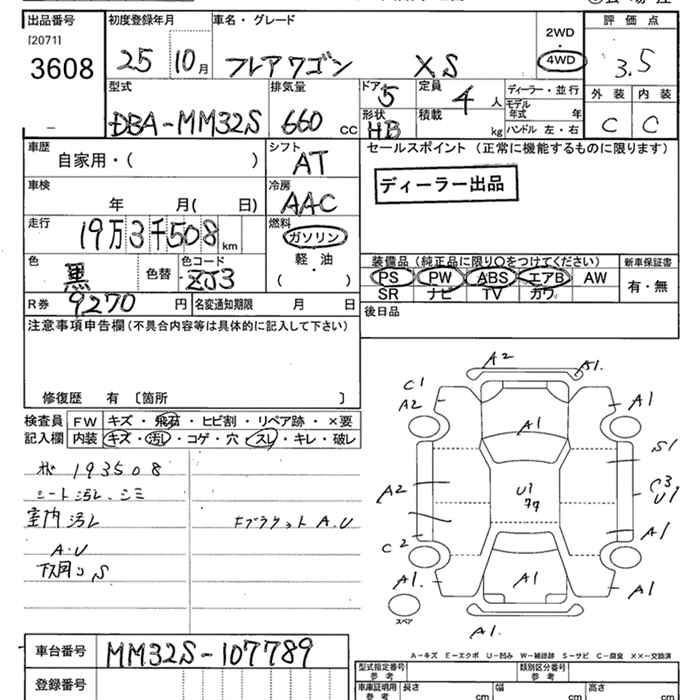 出品番号 初度登録年月 車名・グレード 2WD 評価点
[2071]
3608 25 10月 フレアワゴン XS 4WD 3.5
型式 排気量 ドア 5 定員 4人 ディーラー・並行 外装 内装
DBA-MM32S 660 cc 形状 HB 積載 kg モデル年式 年 C C
ハンドル 左・右
車歴 シフト セールスポイント (正常に機能するものに限ります)
自家用・( ) AT
ディーラー出品
車検 冷房
年 月( 日) AAC
走行 燃料
19万3千508km ガソリン
軽・油
( ・ )
色 黒 色替 色コード ZJ3
装備品 (純正品に限り○をつけてください) 新車保証書
PS PW ABS エアB AW 有・無
SR ナビ TV カワ
R券 9270円 名変通知期限 月 日 後日品
注意事項申告欄(不具合内容等は具体的に記入して下さい)
修復歴 有 〔箇所 〕
検査員 FW キズ・飛石・ヒビ割・リペア跡・×要
記入欄 内装 キズ・汚レ・コゲ・穴・スレ・キレ・破レ
193508
シート汚レ、シミ
室内汚レ Fブラケット A.U
A・U
下廻り S
A2 A1.
C1
A2 A1
A1
S1
A2 U1 C3
U1
A1
C2
A1. A1 A1
スペア
A1.
A-キズ E-エクボ U-凹み W-補修跡 S-サビ C-腐食 ××-交換済
車台番号 MM32S-107789
型式指定番号 参考 類別区分番号 参考
登録番号 車庫証明用 参考 長さ cm 幅 cm 高さ cm